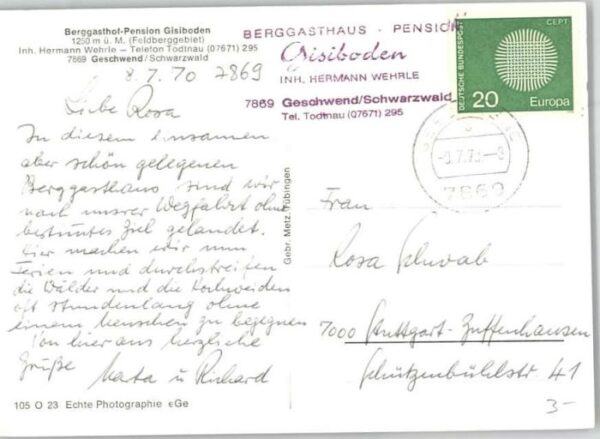 Berggasthof-Pension Gisiboden
1250 m ü. M. (Feldberggebiet)
Inh. Hermann Wehrle – Telefon Todtnau (07671) 295
7869 Geschwend/Schwarzwald
8.7.70 7869
Liebe Rosa
In diesem einsamen
aber schön gelegenen
Berggasthaus sind wir
nach unsrer Wegfahrt ohne
bestimmtes Ziel gelandet.
Hier machen wir nun
Ferien und durchstreifen
die Wälder und die Hochweiden
oft stundenlang ohne
einem Menschen zu begegnen
Von hier aus herzliche
Grüße
u Richard
105 O 23 Echte Photographie eGe
Gebr. Metz, Tübingen
BERGGASTHAUS - PENSION
Gisiboden
INH. HERMANN WEHRLE
7869 Geschwend/Schwarzwald
Tel. Todtnau (07671) 295
CEPT
DEUTSCHE BUNDESPOST
20 Europa
7869
Frau
Rosa Schwab
7000 Stuttgart-Zuffenhausen
Schützenbühlstr 41
3-